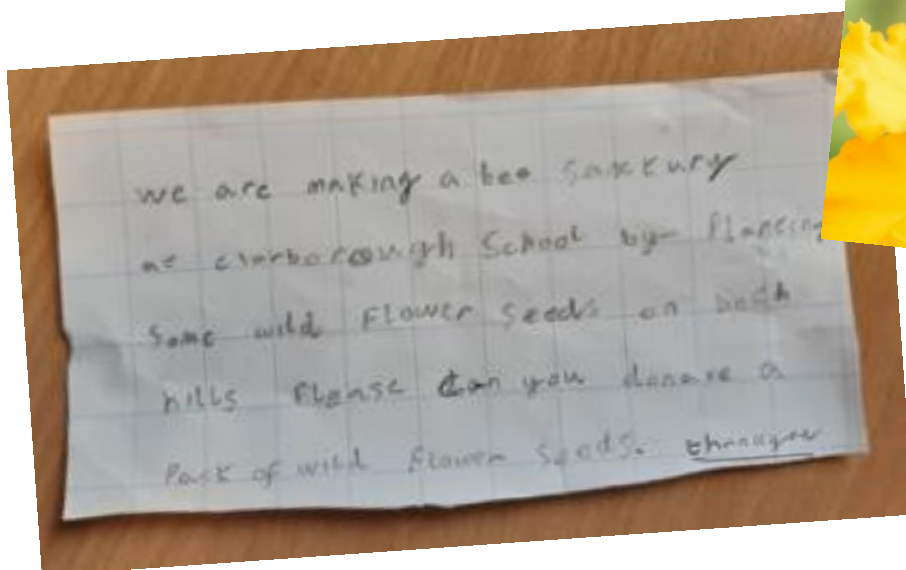 we are making a bee sanctury
at clarborough School by Planting
Some wild Flower Seeds on both
hills Please Can you donate a
Pack of wild Flower Seeds.